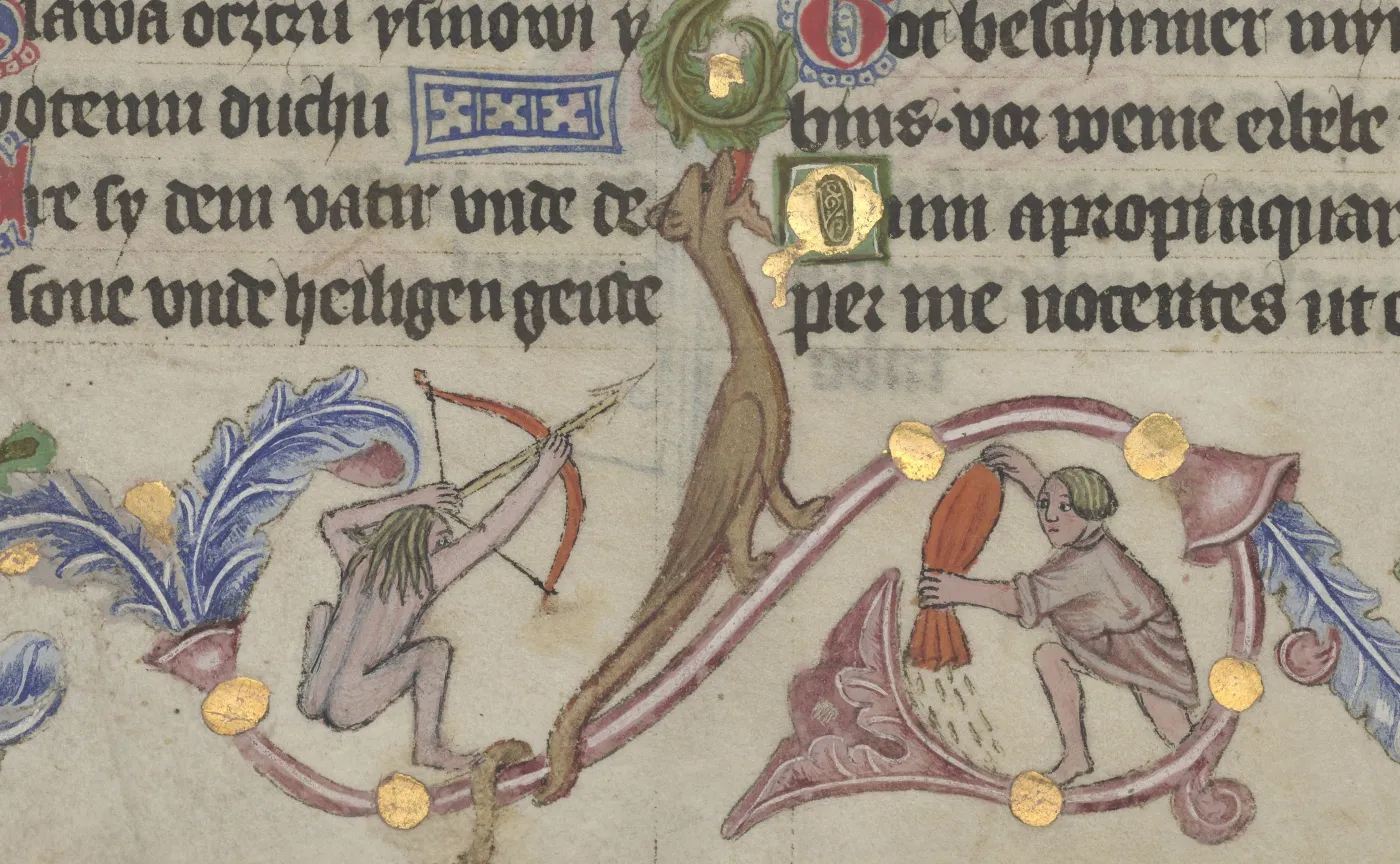 Slawa oczczu ysinowi y
wotemu duchu
Ere sy dem vatir vnde de
sone vnde heiligen geiste
Got beschirmer
bins·vor weme erbebe
Dum apropinquan
per me nocentes ut